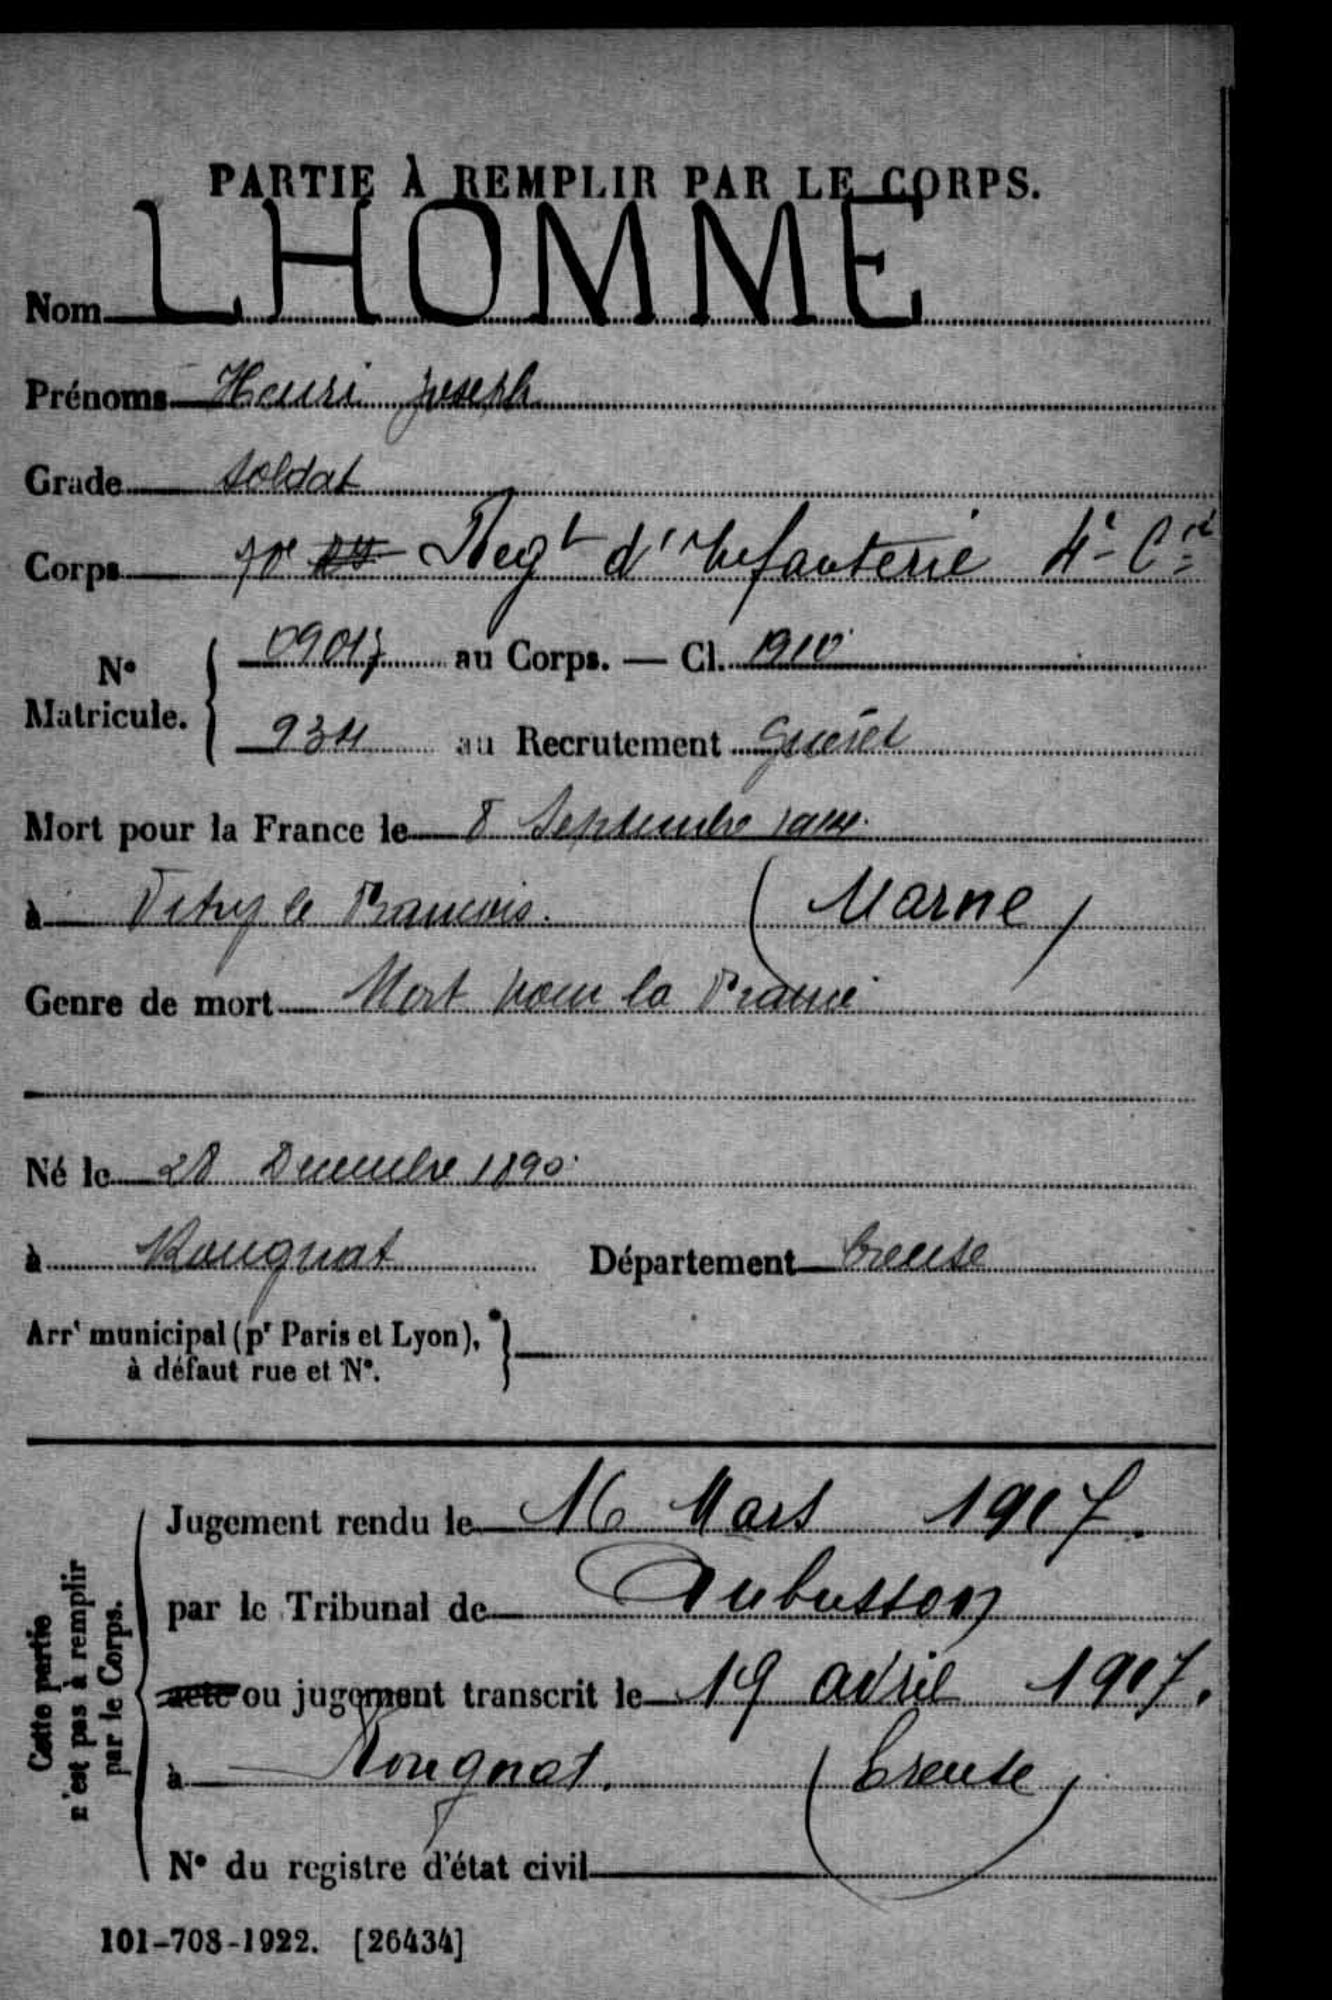 PARTIE À REMPLIR PAR LE CORPS.
Nom LHOMME
Prénoms Henri Joseph
Grade Soldat
Corps 70e Regt d'Infanterie 4e Cie
N° Matricule. 09017 au Corps. — Cl. 1910
934 au Recrutement Guéret
Mort pour la France le 8 Septembre 1914
à Vitry le François. (Marne)
Genre de mort Mort pour la France
Né le 28 Decembre 1890
à Rougnat Département Creuse
Arrt municipal (pr Paris et Lyon),
à défaut rue et N°.
Cette partie
n'est pas à remplir
par le Corps.
Jugement rendu le 16 Mars 1917.
par le Tribunal de Aubusson
acte ou jugement transcrit le 19 avril 1917.
à Rougnat. (Creuse)
N° du registre d'état civil
101-708-1922. [26434]